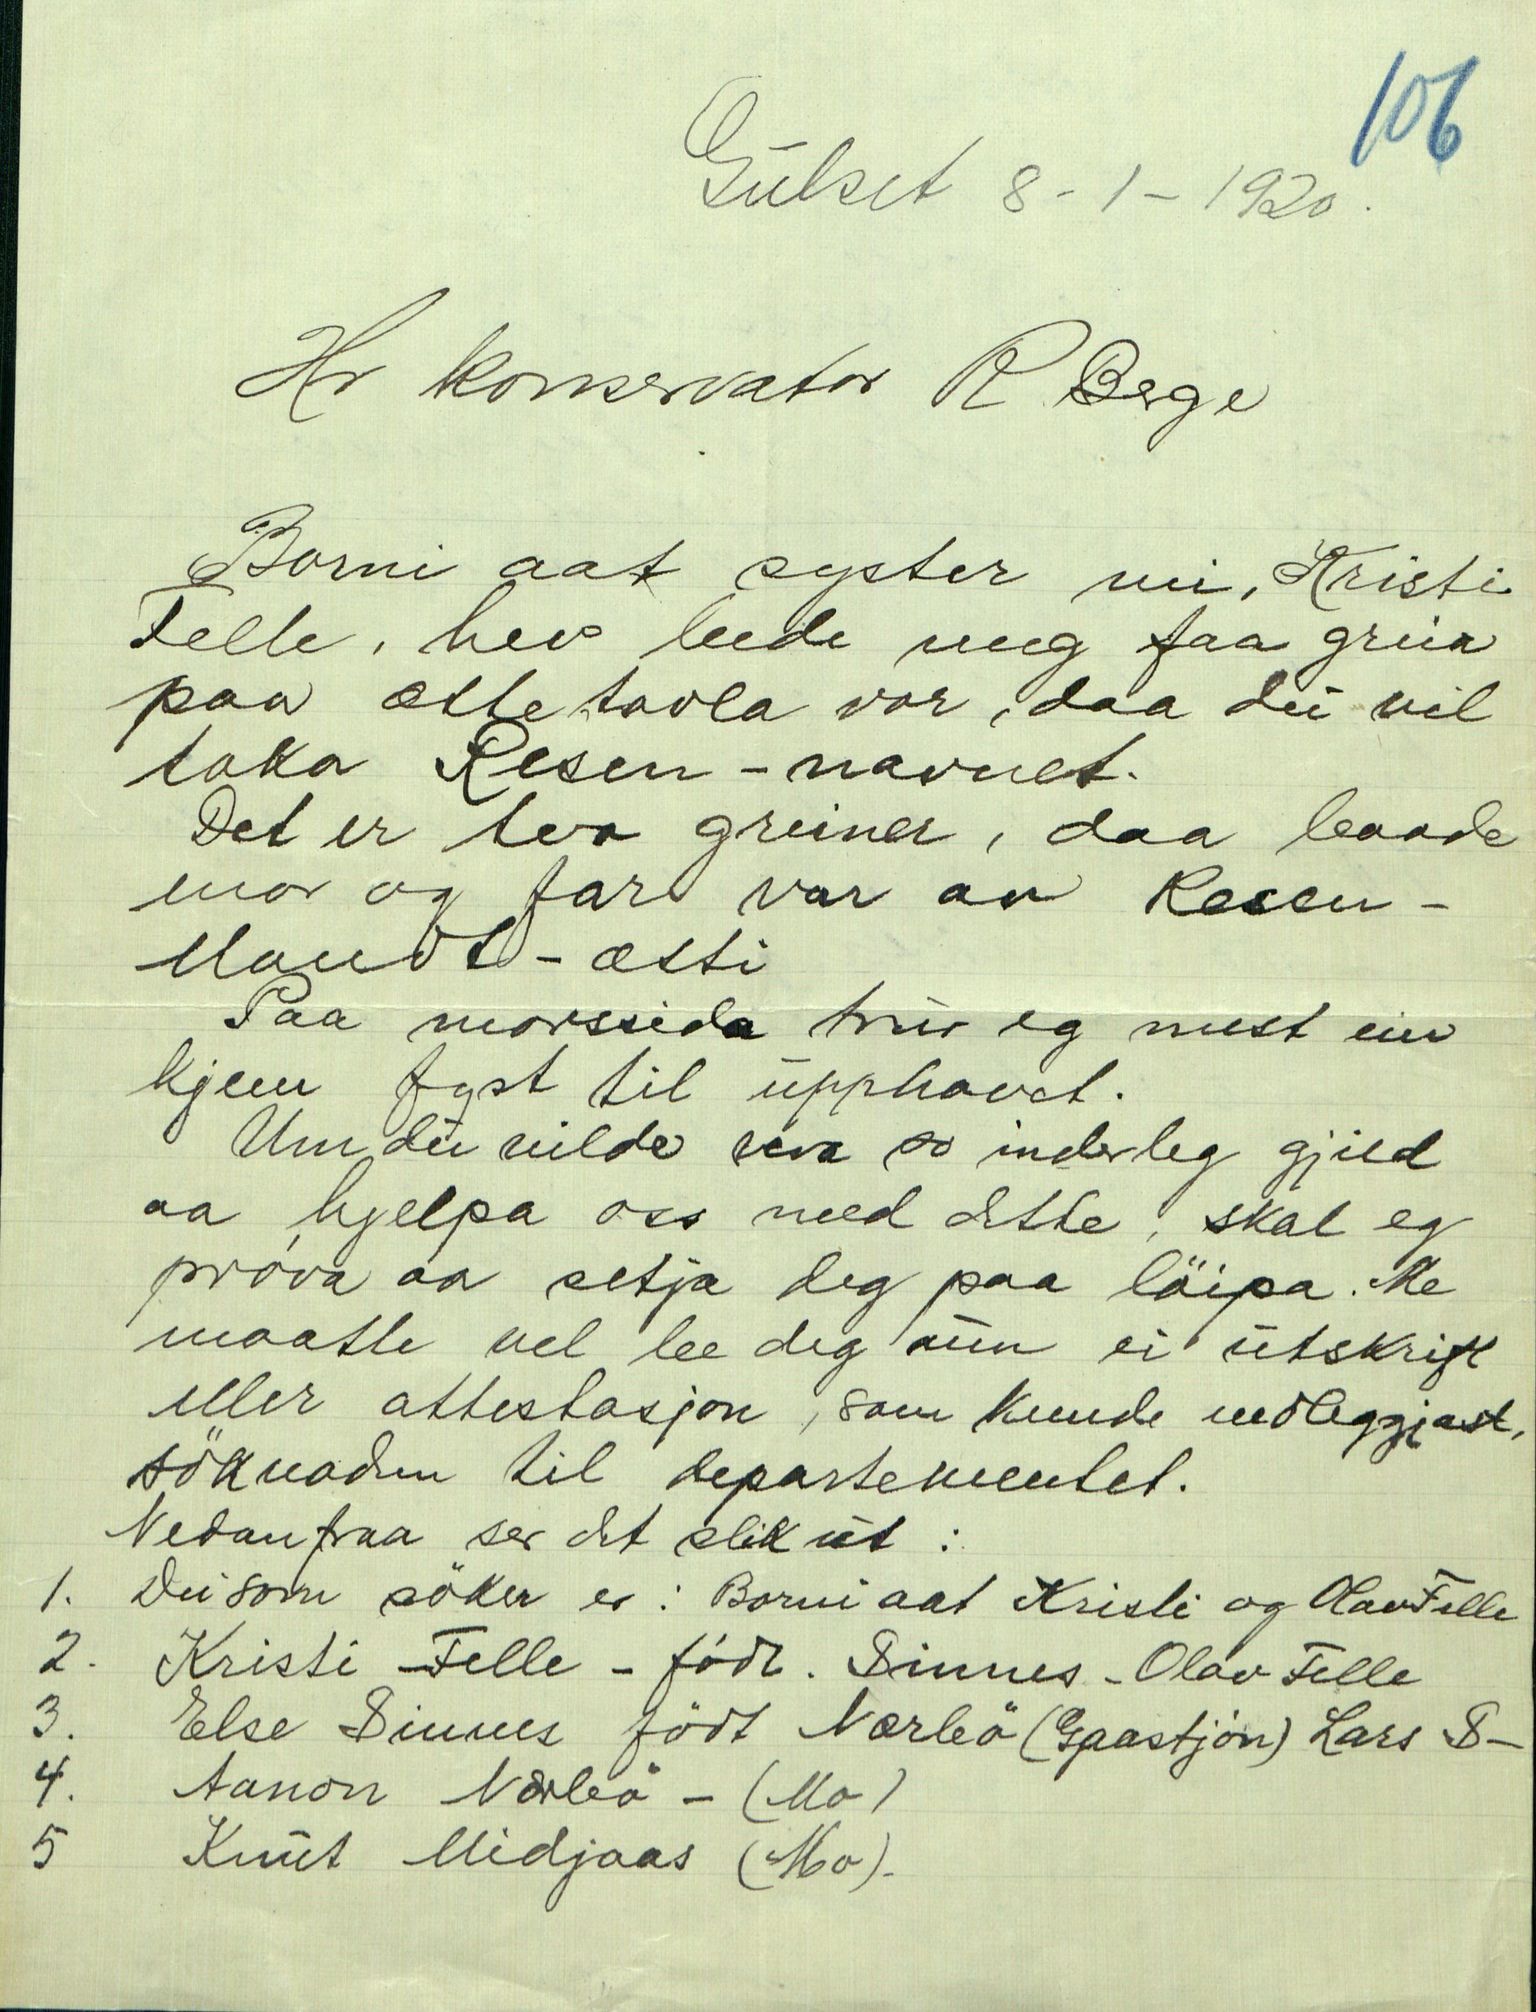 106
Gulset 8-1-1920.
Hr konservator R Berge
Borni aat syster mi, Kristi
Felle, hev bede meg faa greia
paa ættetavla vor, daa dei vil
taka Resen-navnet.
Det er tvo greiner, daa baade
mor og far var av Resen-
Mandt-ætti
Paa morssida trur eg mest ein
kjem fyst til upphavet.
Um du vilde vera so inderleg gjild
aa hjelpa oss med dette, skal eg
pröva aa setja deg paa löipa. Me
maatte vel be deg um ei utskrift
eller attestasjon, som kunde vedleggjast,
söknaden til departementet.
Nedanfraa ser det slik ut:
1. Dei som söker er: Borni aat Kristi og Olav Felle
2. Kristi Felle - födt. Sinnes - Olav Felle
3. Else Sinnes födt Nærbö (Gaastjön) Lars S-
4. Aanon Nærbö - (Mo)
5 Knut Midjaas (Mo).